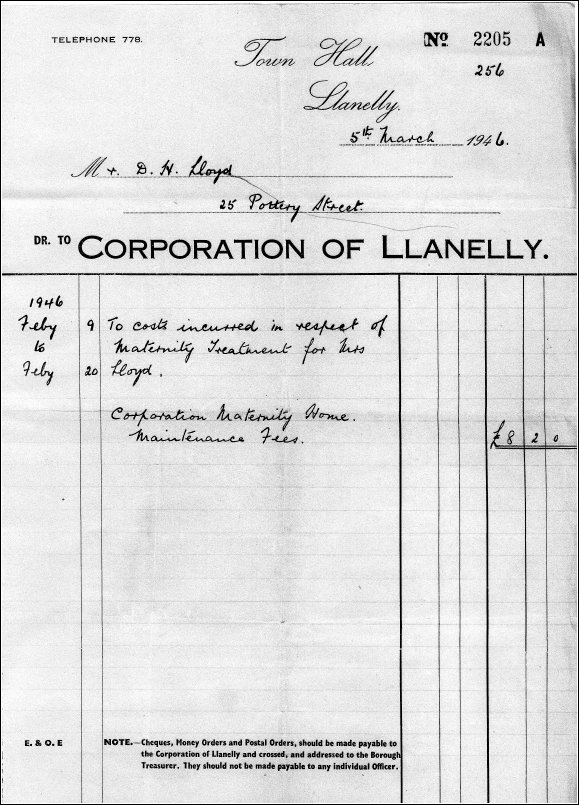 TELEPHONE 778.
No. 2205 A
256
Town Hall,
Llanelly.
5th March 1946.
Mr. D. H. Lloyd
25 Pottery Street.
DR. TO CORPORATION OF LLANELLY.
1946
Feby 9 To costs incurred in respect of
to Maternity Treatment for Mrs
Feby 20 Lloyd.
Corporation Maternity Home.
Maintenance Fees. £8 2 0
E. & O. E NOTE.—Cheques, Money Orders and Postal Orders, should be made payable to
the Corporation of Llanelly and crossed, and addressed to the Borough
Treasurer. They should not be made payable to any individual Officer.